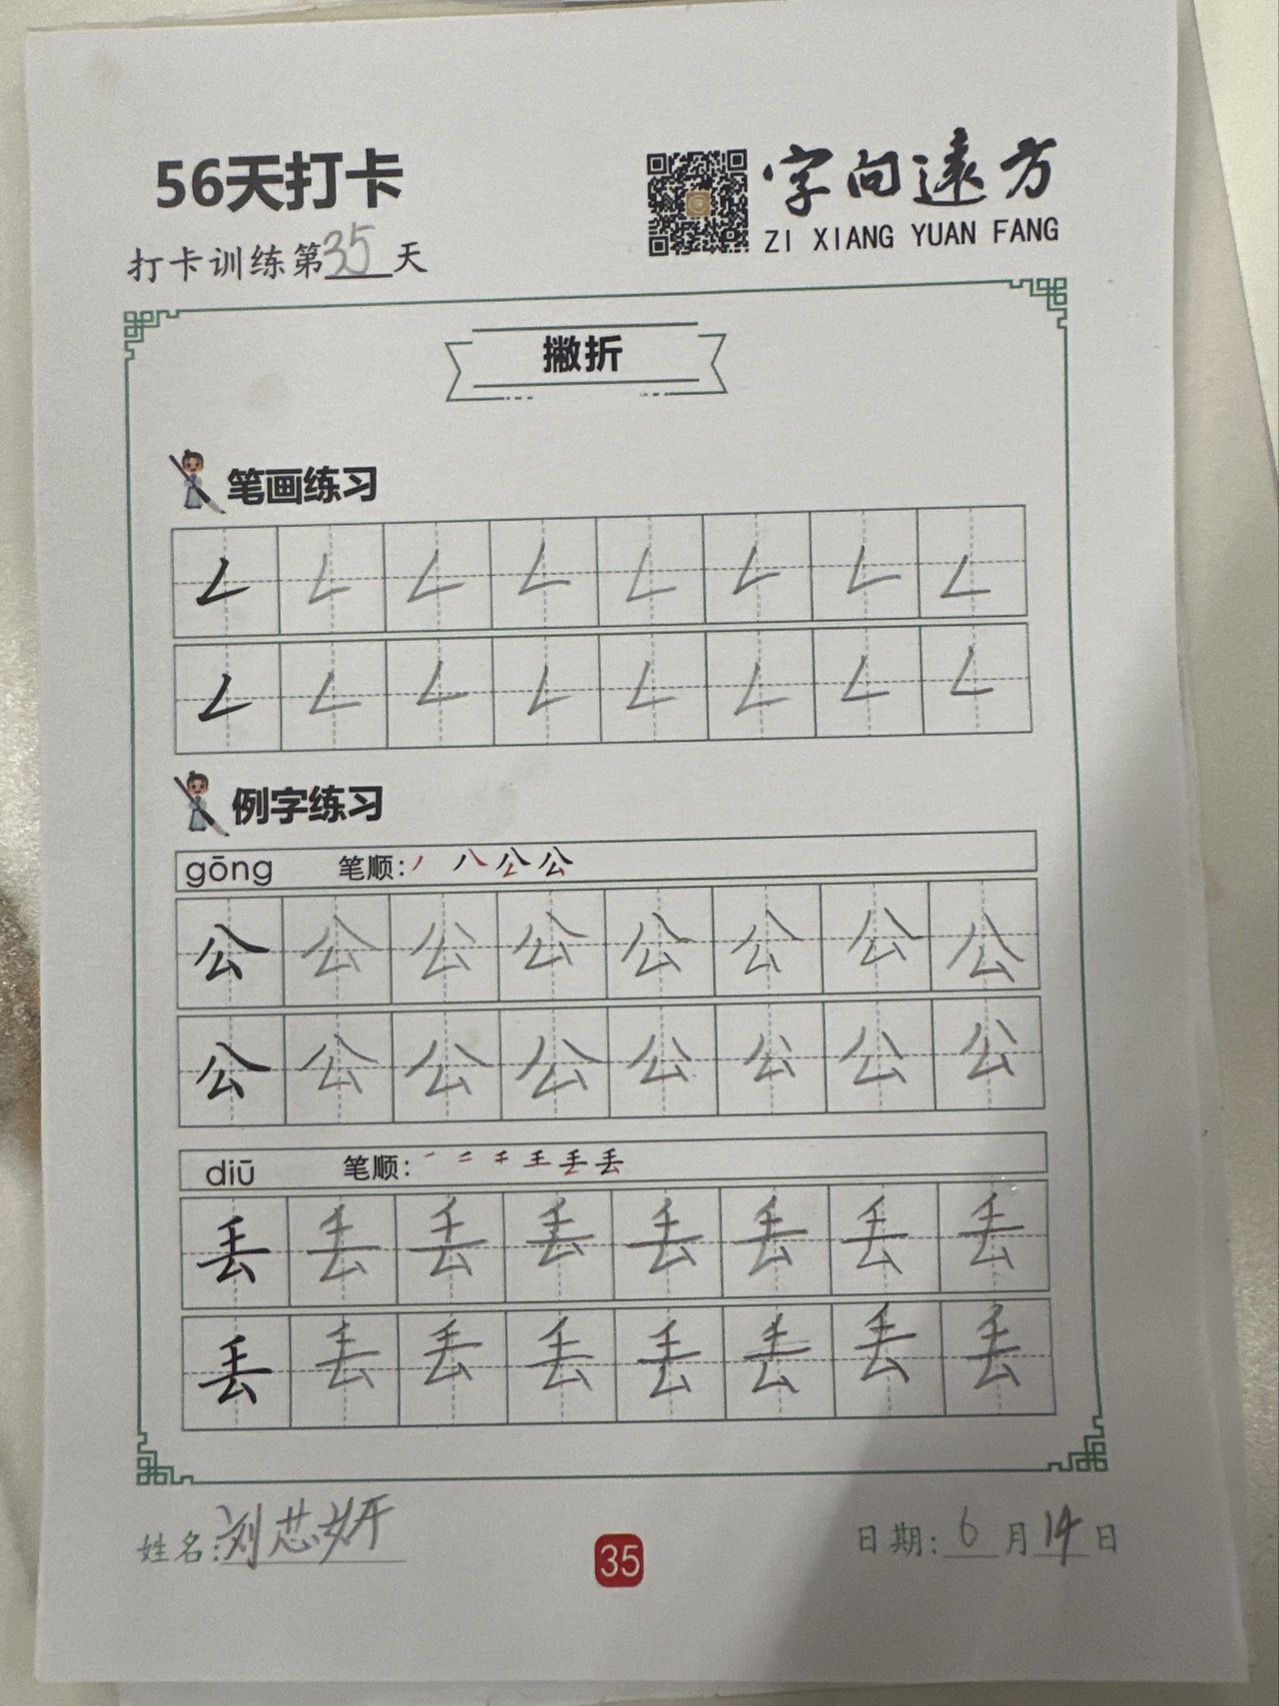 56天打卡
字向遠方
ZI XIANG YUAN FANG
打卡训练第35天
撇折
笔画练习
𠃋 𠃋 𠃋 𠃋 𠃋 𠃋 𠃋 𠃋
𠃋 𠃋 𠃋 𠃋 𠃋 𠃋 𠃋 𠃋
例字练习
gōng 笔顺: 丿 八 公 公
公 公 公 公 公 公 公 公
公 公 公 公 公 公 公 公
diū 笔顺: 一 二 千 王 丢 丢
丢 丢 丢 丢 丢 丢 丢 丢
丢 丢 丢 丢 丢 丢 丢 丢
姓名:刘芯妍
35
日期:6月14日